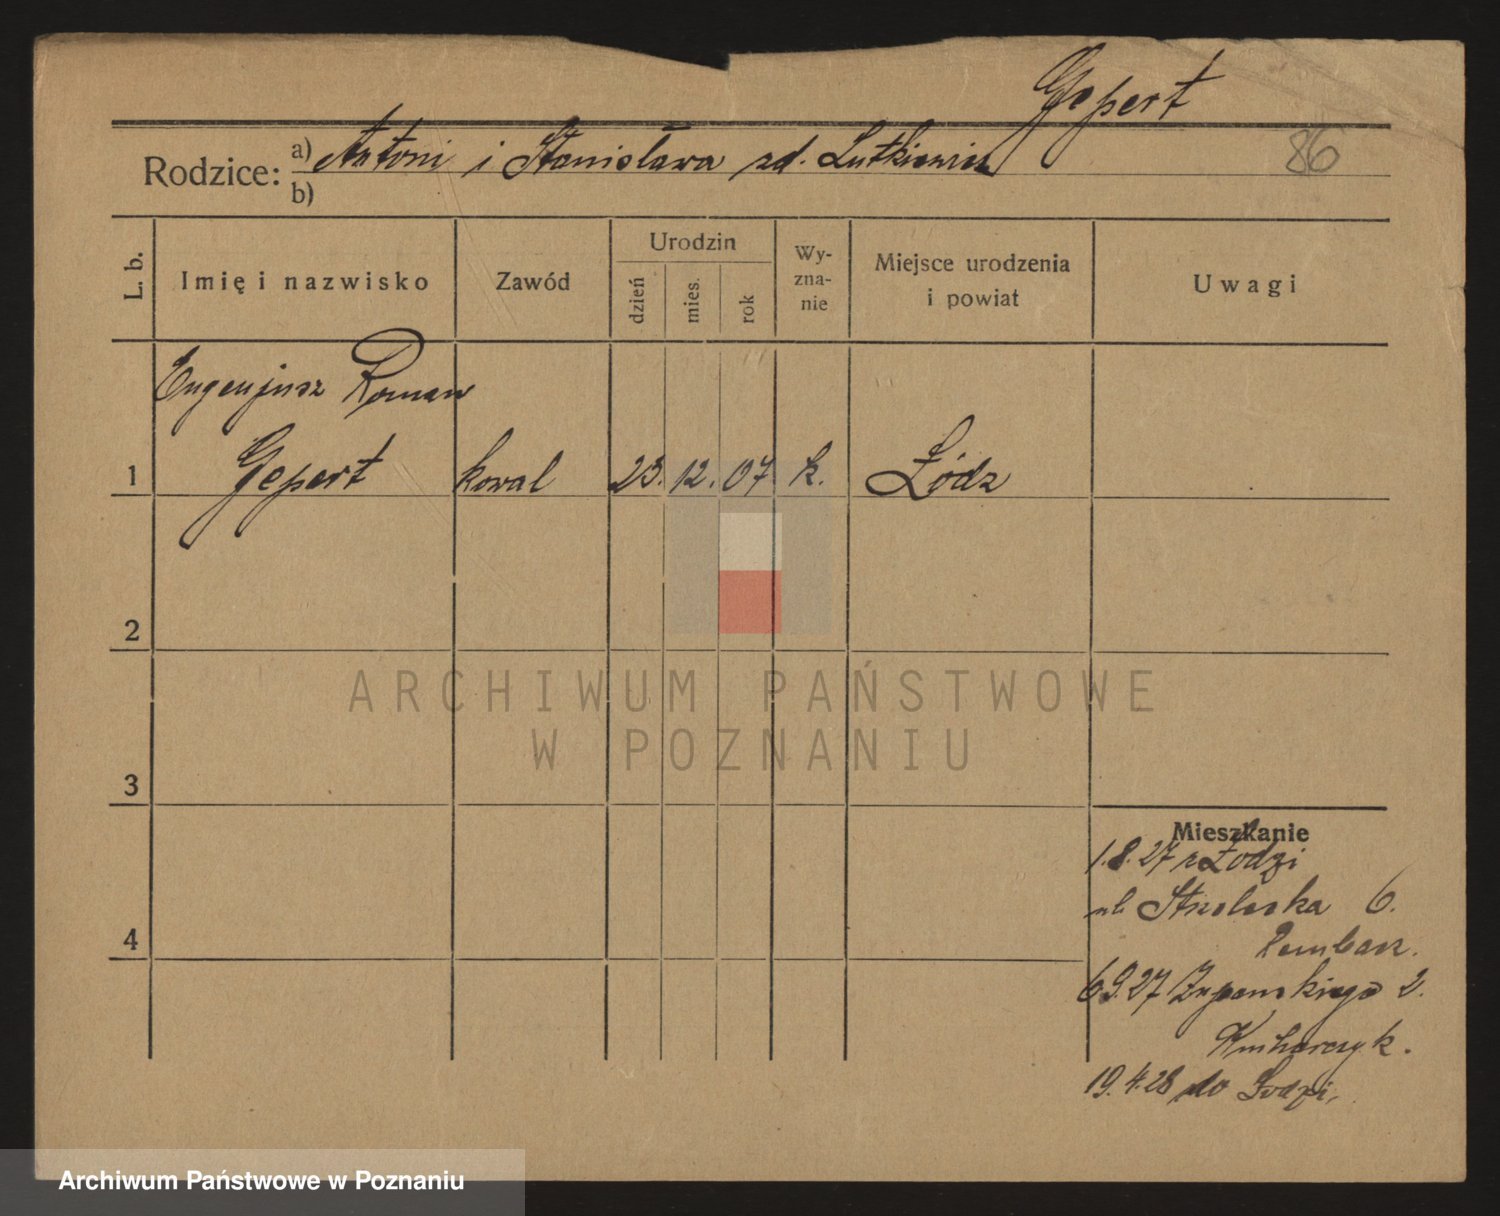 Gepert
86
Rodzice: a) Antoni i Stanisława zd. Lutkiewicz
b)
L. b.
Imię i nazwisko
Zawód
Urodzin
dzień
mies.
rok
Wy-
zna-
nie
Miejsce urodzenia
i powiat
Uwagi
Eugenjusz Roman
1 Gepert kowal 23. 12. 07 k. Łódz
2
ARCHIWUM PAŃSTWOWE
W POZNANIU
3
Mieszkanie
1.8.27 z Łodzi
ul. Strzelecka 6.
4
6.9.27 Zupańskiego 2.
19.4.28 do Łodzi,
Archiwum Państwowe w Poznaniu